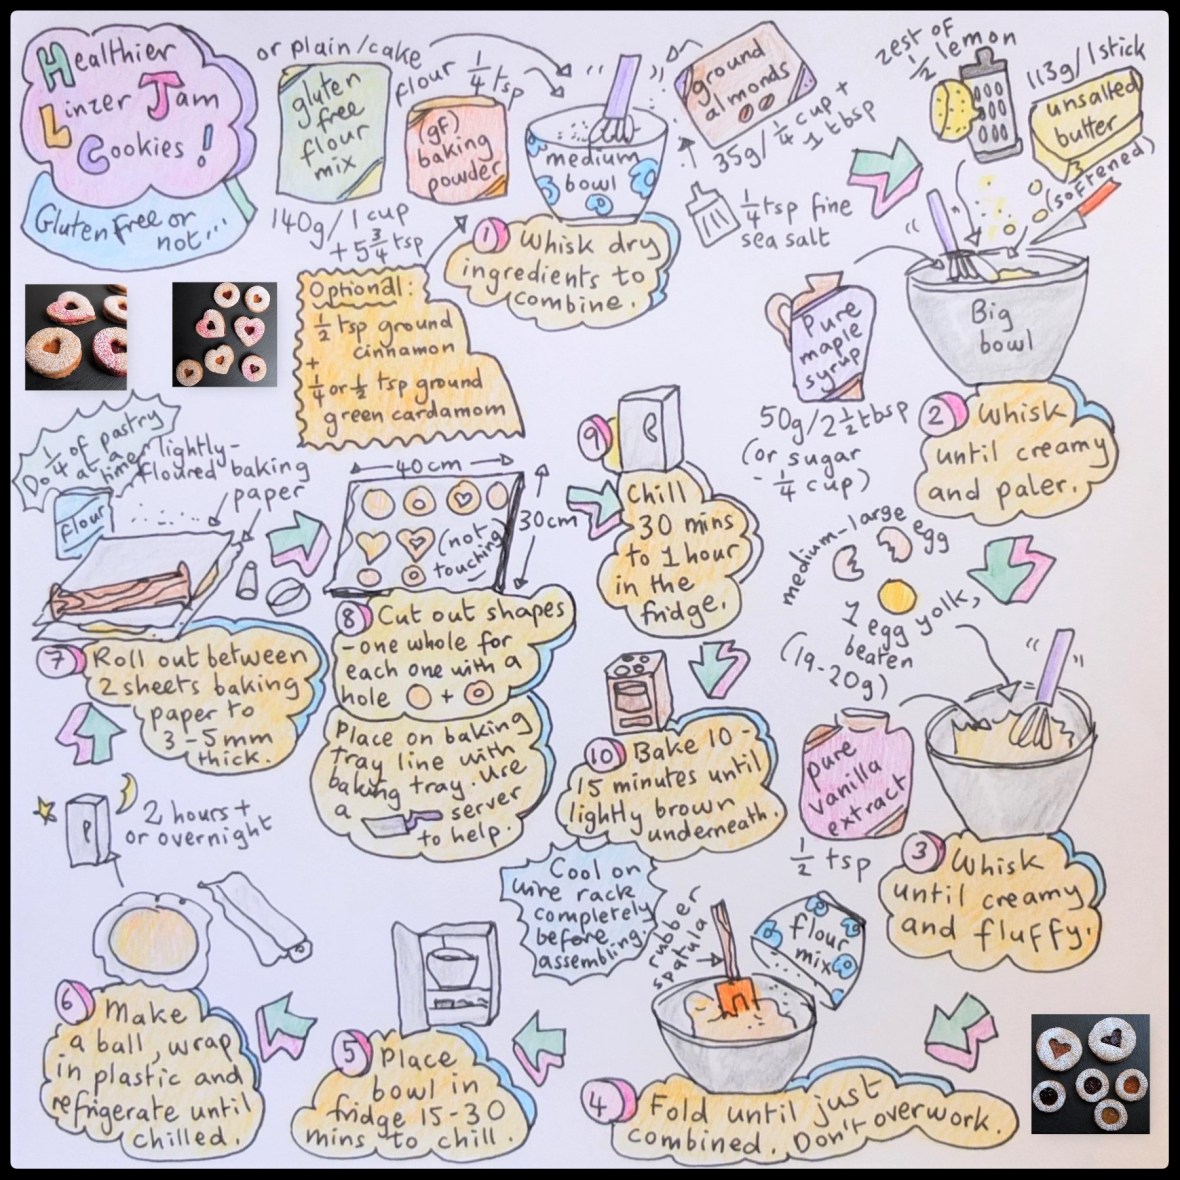 Healthier
Linzer Jam
Cookies!
Gluten free or
not...
or plain/cake
flour
gluten
free
flour
mix
140g/1 cup
+ 5 3/4 tsp
1/4 tsp
(gf)
baking
powder
medium
bowl
ground
almonds
35g/1/4 cup +
1 tbsp
1/4 tsp fine
sea salt
1 Whisk dry
ingredients to
combine.
Optional:
1/2 tsp ground
cinnamon
+
1/4 or 1/2 tsp ground
green cardamom
zest of
1/2 lemon
113g/1 stick
unsalted
butter
(softened)
Big
bowl
Pure
maple
syrup
50g/2 1/2 tbsp
(or sugar
- 1/4 cup)
2 Whisk
until creamy
and paler.
medium-large egg
1 egg yolk,
beaten
(19-20g)
pure
vanilla
extract
1/2 tsp
3 Whisk
until creamy
and fluffy.
rubber
spatula
flour
mix
4 Fold until just
combined. Don't overwork.
5 Place
bowl in
fridge 15-30
mins to chill.
6 Make
a ball, wrap
in plastic and
refrigerate until
chilled.
2 hours +
or overnight
1/4 of pastry
Do at a
time
lightly-
floured baking
paper
flour
7 Roll out between
2 sheets baking
paper to
3-5mm
thick.
40cm
30cm
(not
touching)
8 Cut out shapes
- one whole for
each one with a
hole +
Place on baking
tray line with
baking tray. Use
a server
to help.
9 Chill
30 mins
to 1 hour
in the
fridge.
10 Bake 10-
15 minutes until
lightly brown
underneath.
Cool on
wire rack
completely
before
assembling.